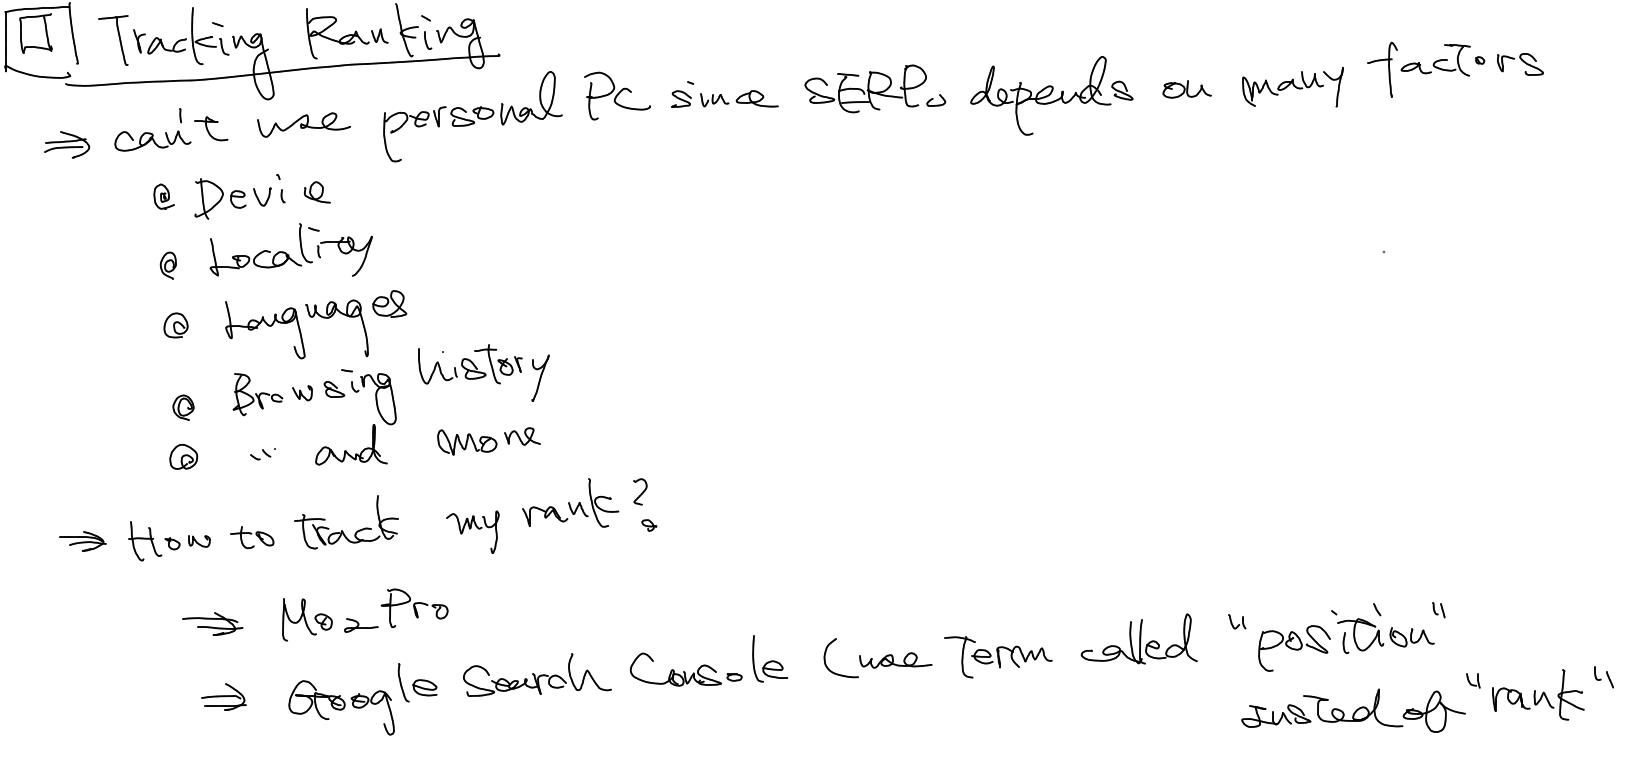 Tracking Ranking
⇒ can't use personal PC since SERPs depends on many factors
@ Device
@ Locality
@ Languages
@ Browsing history
@ ... and more
⇒ How to track my rank?
⇒ Moz Pro
⇒ Google Search Console (use term called "position"
insted of "rank"